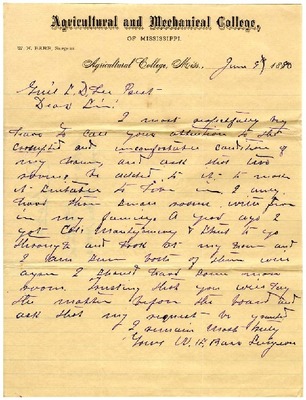 Agricultural and Mechanical College,
OF MISSISSIPPI.
W. H. BARR, Surgeon
Agricultural College, Miss., June 5 1880
Gen'l S. D. Lee Prest
Dear Sir:
I most respectfully beg
leave to call your attention to the
crowded and uncomfortable condition of
my house, and ask that two
rooms be added to it to make
it suitable to live in. I only
have three small rooms
in my family. A few days ago I
got Col. Montgomery & to go
through and look at my house and
I am sure both of them were
again I should have some more
room. Trusting that you will lay
the matter before the board and
ask that my request be granted
I remain Most Truly
Yours W. H. Barr Surgeon